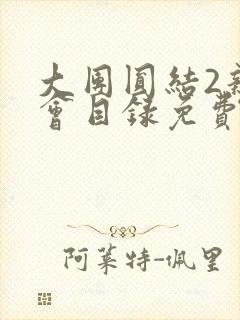 大團圓結2新
會目錄免費
阿萊特-佩里